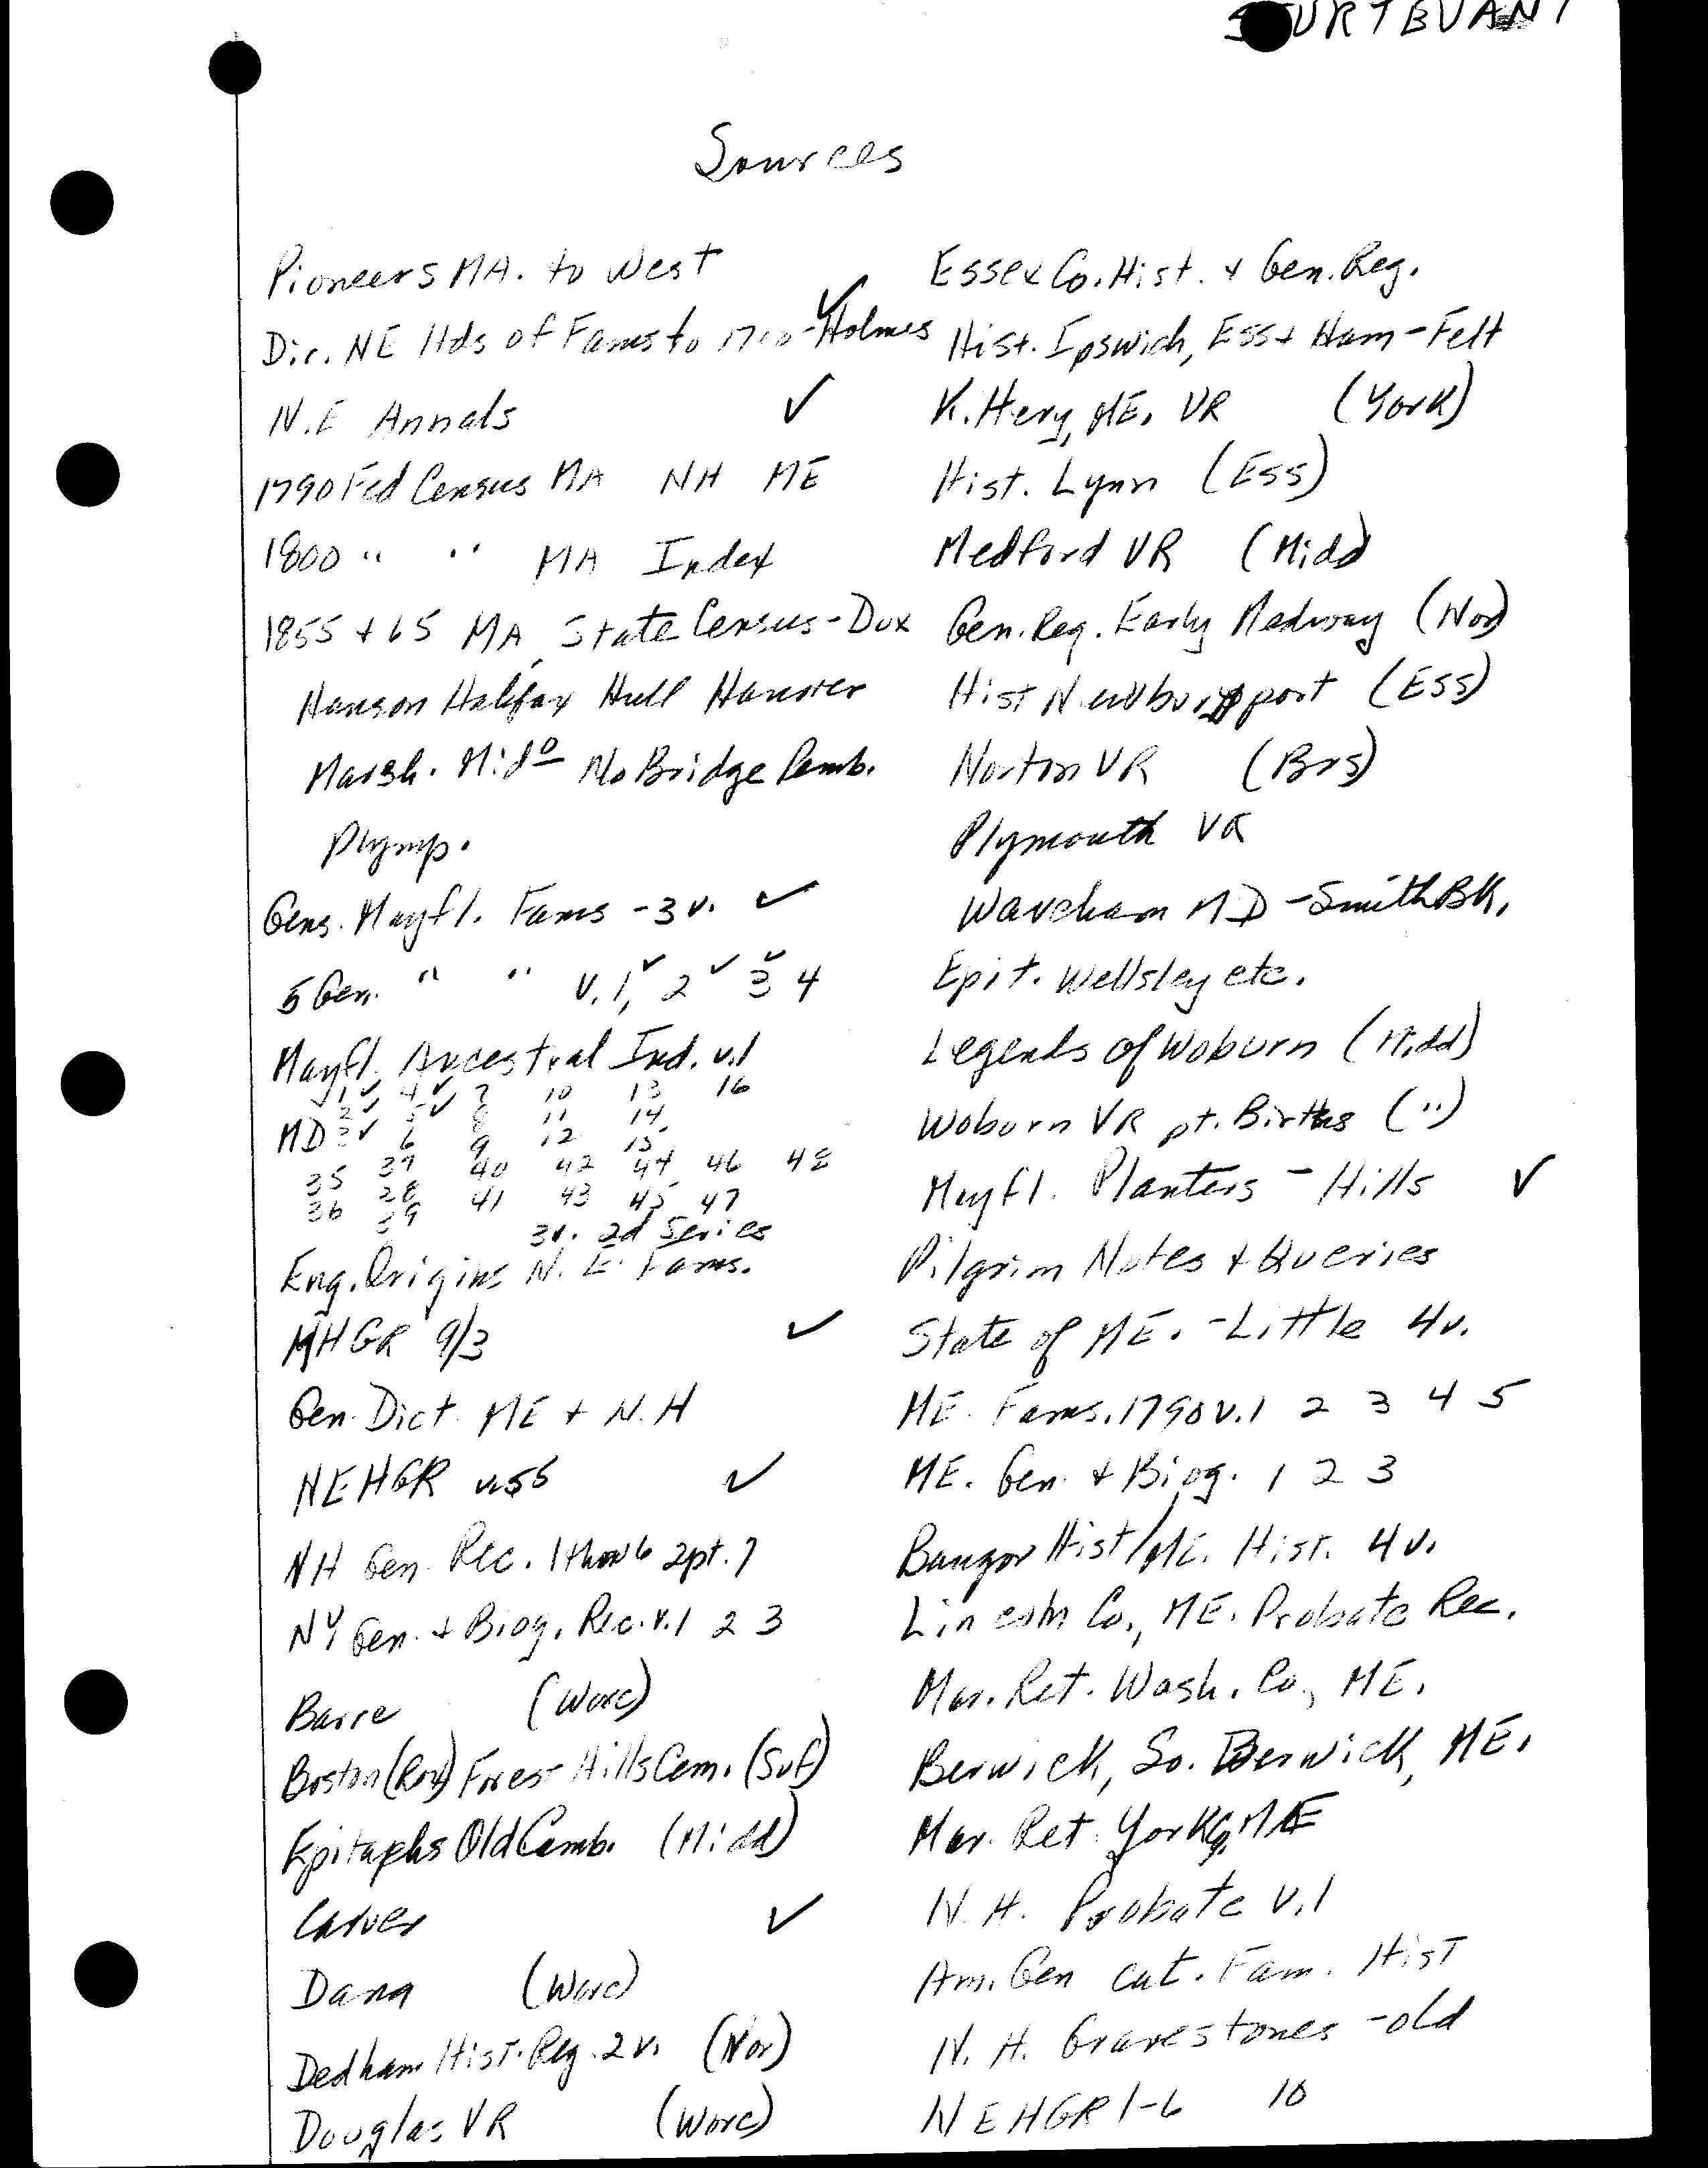 STURTEVANT
Sources
Pioneers MA. to West
Dir. NE Hds of Fams to 1700 - Holmes ✓
N.E Annals ✓
1790 Fed Census MA NH ME
1800 " " MA Index
1855 + 65 MA State Census - Dux
Hanson Halifax Hull Hanover
Marsh. Mido No Bridge Pemb.
Plymp.
Gens. Mayfl. Fams - 3 v. ✓
5 Gen. " " v. 1, ✓ 2 ✓ 3 ✓ 4
Mayfl. Ancestral Ind. v.1
1 ✓ 4 ✓ 7 10 13 16
2 ✓ 5 ✓ 8 11 14
MD 3 ✓ 6 9 12 15
35 37 40 42 44 46 48
36 38 41 43 45 47
39 3v. 2d Series
Eng. Origins N. E. Fams.
MHGR 9/3 ✓
Gen. Dict. ME + N.H
NEHGR v.55 ✓
NH Gen. Rec. 1 thru 6 2pt. 7
NY Gen. + Biog. Rec. v.1 2 3
Barre (Worc)
Boston (Rox) Forest Hills Cem. (Suf)
Epitaphs Old Camb. (Midd)
Carver ✓
Dana (Worc)
Dedham Hist. Reg. 2 v. (Nor)
Douglas VR (Worc)
Essex Co. Hist. + Gen. Reg.
Hist. Ipswich, Ess + Ham - Felt
K. Hery, ME. VR (York)
Hist. Lynn (Ess)
Medford VR (Midd
Gen. Reg. Early Medway (Nor)
Hist Newburyport (Ess)
Norton VR (Brs)
Plymouth VR
Wareham MD - Smith Bk.
Epit. Wellsley etc.
Legends of Woburn (Midd)
Woburn VR pt. Births (")
Mayfl. Planters - Hills ✓
Pilgrim Notes + Queries
State of ME. - Little 4v.
ME. Fams. 1790 v.1 2 3 4 5
ME. Gen. + Biog. 1 2 3
Bangor Hist/ME. Hist. 4 v.
Lincoln Co., ME. Probate Rec.
Mar. Ret. Wash. Co., ME.
Berwick, So. Berwick, ME.
Mar. Ret. York Co, ME
N. H. Probate v.1
Am. Gen cat. Fam. Hist
N. H. Gravestones - old
NEHGR 1-6 10